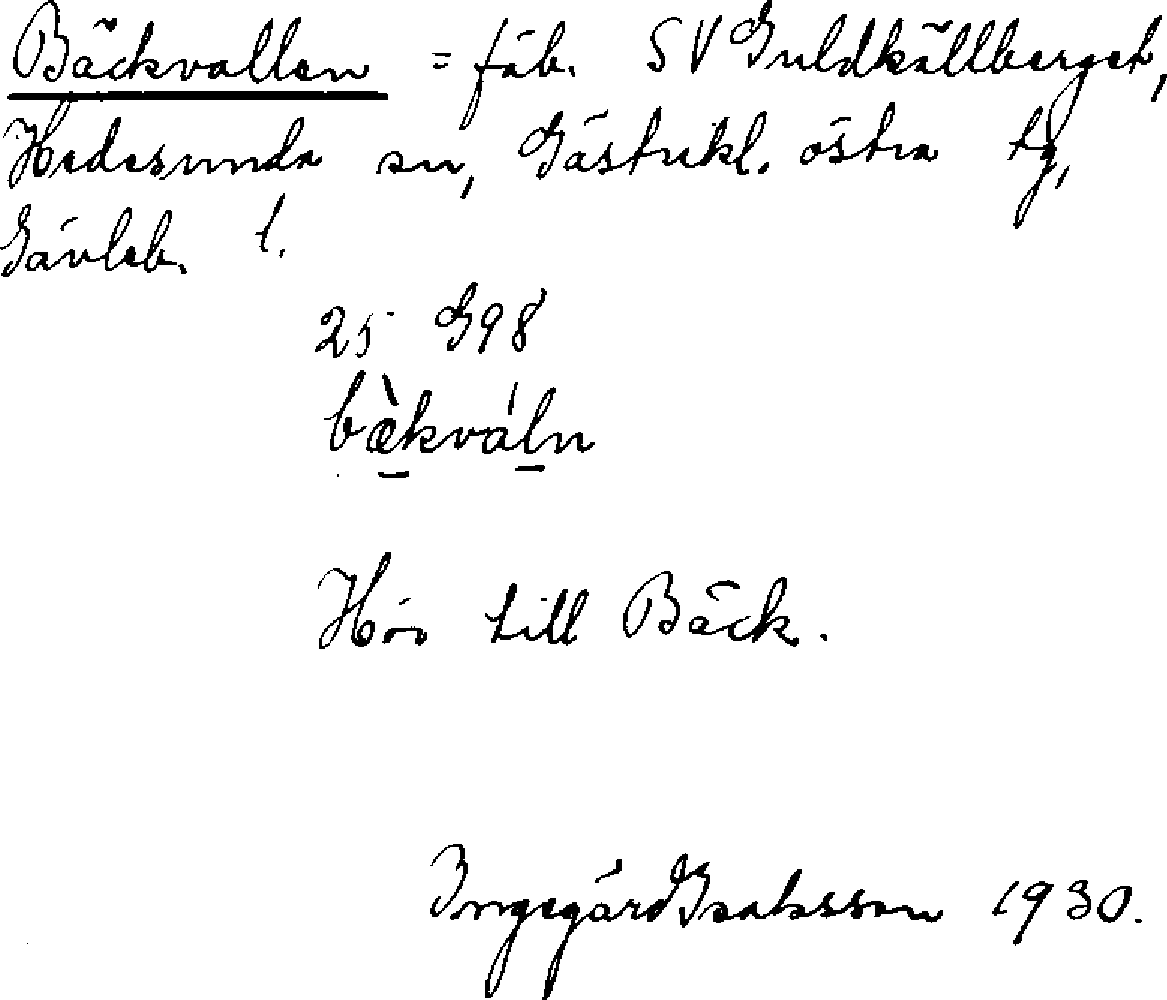 Bäckvallen = fäb. SV Guldkällberget,
Hedesunda sn, Gästrikl. östra tg,
Gävleb. l.
25 G98
bæ̀kváln
Hör till Bäck.
Ingegärd Isaksson 1930.